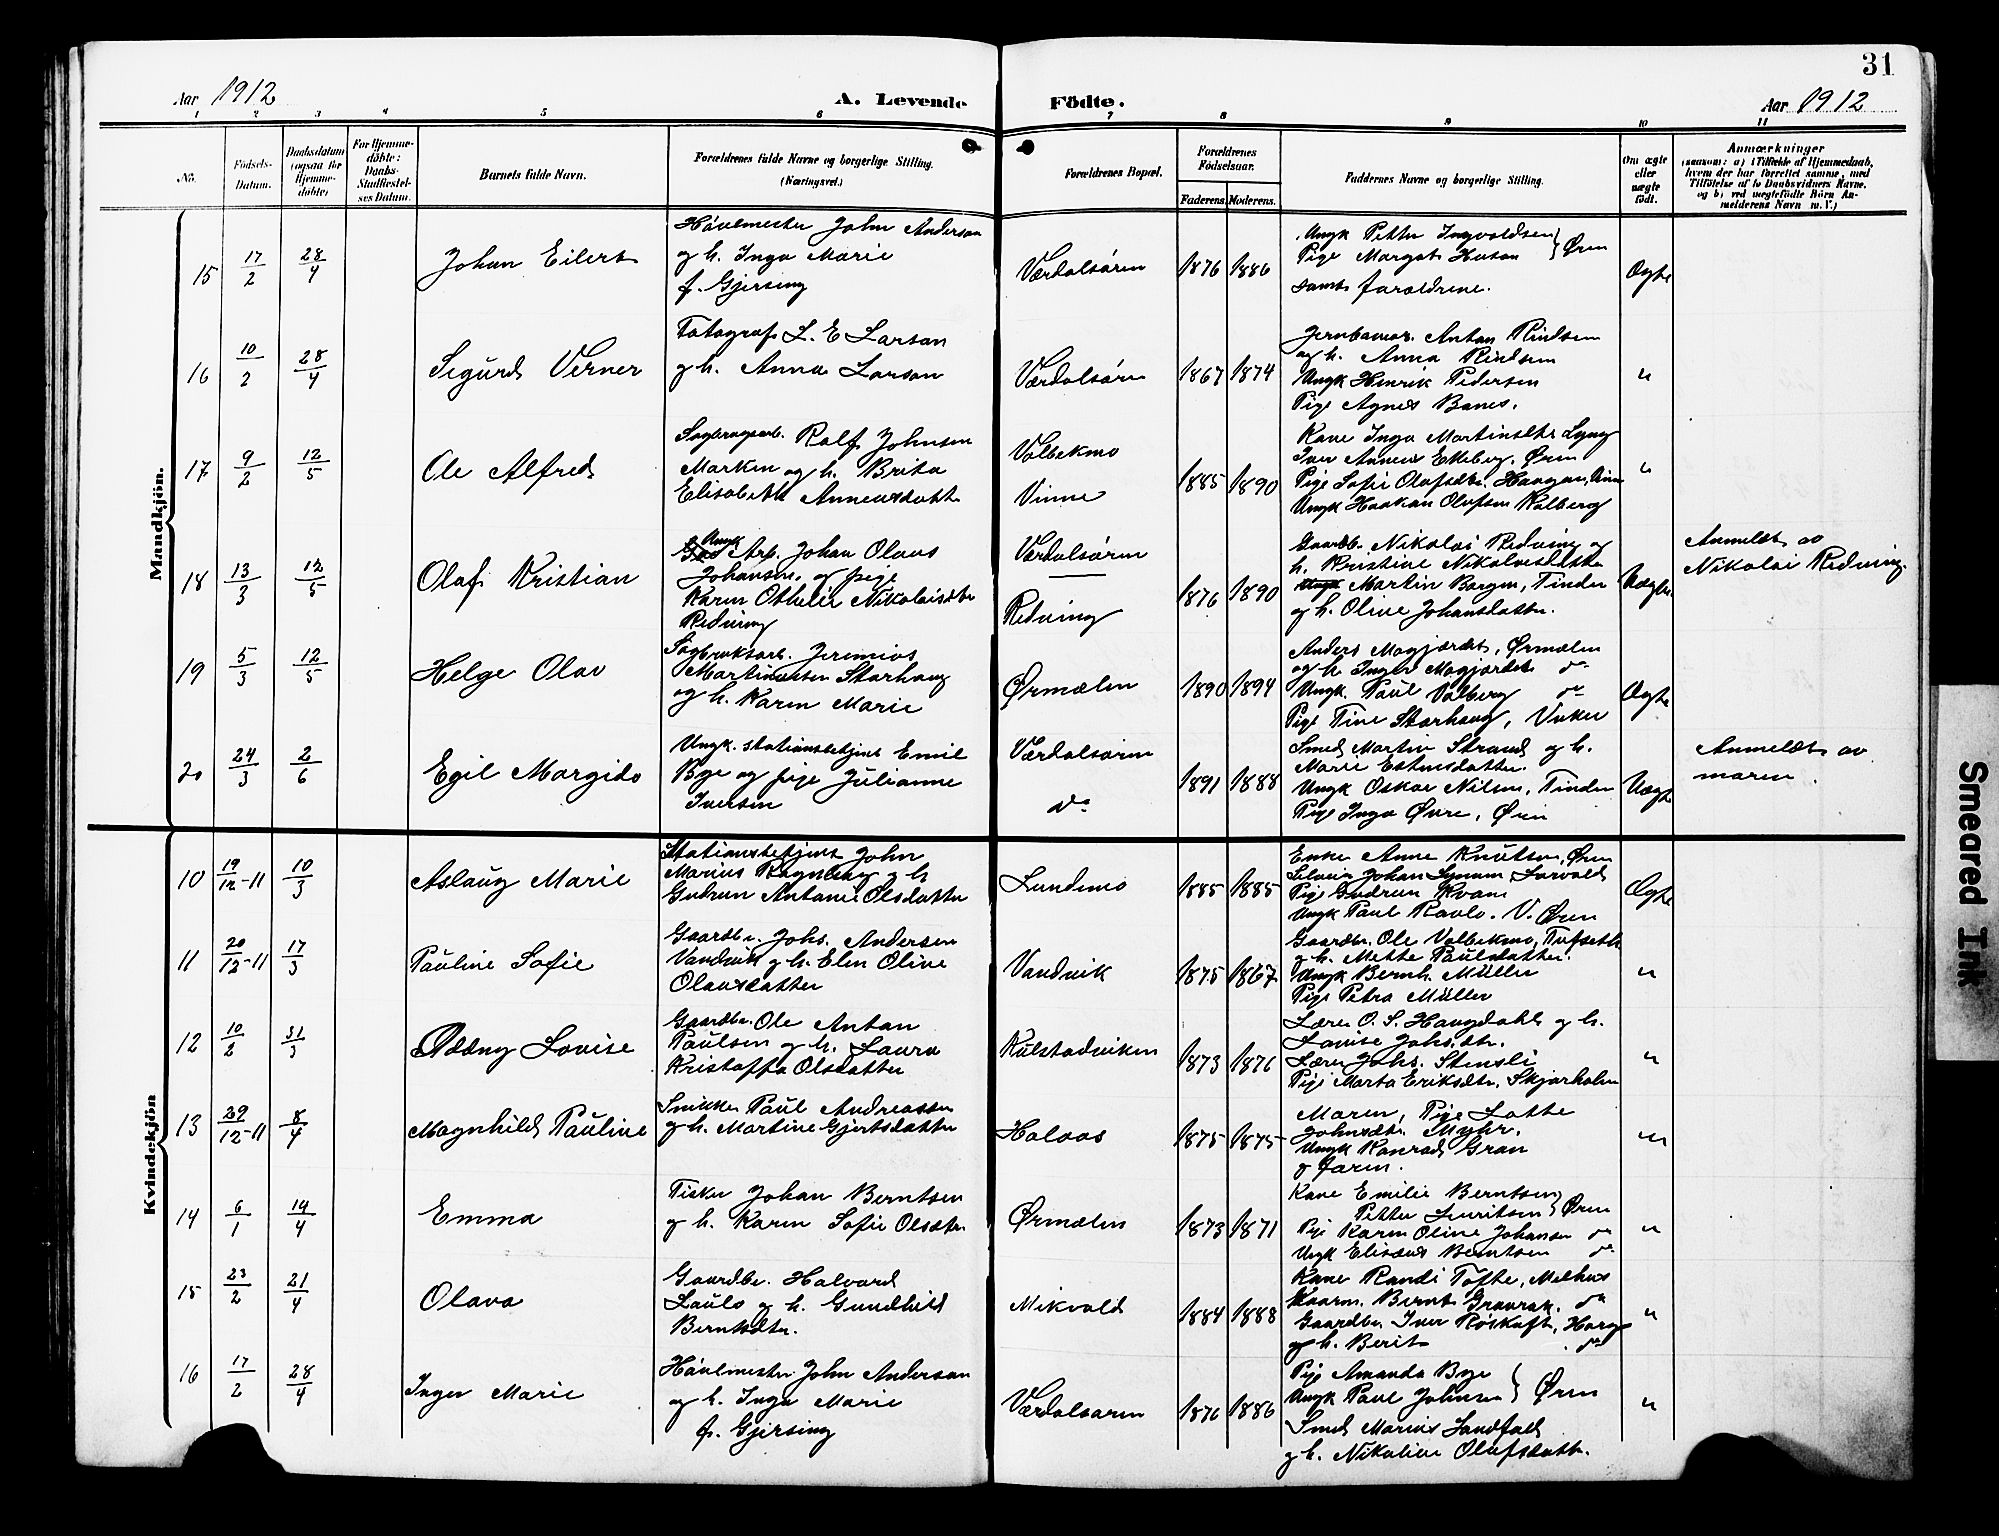 31
Aar 1912
A. Levende
Födte.
Aar 1912
1 2 3 4 5 6 7 8 9 10 11
No.
Födsels-
Datum.
Daabsdatum
(ogsaa for
Hjemme-
döbte)
For Hjemme-
döbte:
Daabs-
Stadfæstel-
ses Datum.
Barnets fulde Navn.
Forældrenes fulde Navne og borgerlige Stilling.
(Næringsvei.)
Forældrenes Bopæl.
Forældrenes
Födselsaar.
Faderens. Moderens.
Faddernes Navne og borgerlige Stilling.
Om ægte
eller
uægte
födt.
Anmærkninger
(saasom: a) i Tilfælde af Hjemmedaab,
hvem der har forrettet samme, med
Tilföielse af to Daabsvidners Navne,
og b) ved uægtefödte Börn An-
melderens Navn m. V.)
Mandkjön.
15 17/2 28/4 Johan Eilert
Hövlmester John Anderson
og h. Inga Marie
f. Gjersing
Værdalsören 1876 1886
Ungk Petter Ingvoldsen
Pige Margot } Ören
samt forældrene.
Ægte
16 10/2 28/4 Sigurd Verner
Fotograf L. E Larson
og h. Anna Larson
Værdalsören 1867 1874
Anton Rindsem
og h. Anna Rindsem
Ungk Henrik Pedersen
Pige Agnes Banes.
"
17 9/2 12/5 Ole Alfred
Sagbrugsarb. Rolf Johnsen
Marken og h. Brita
Elisabeth Anneusdatt
Volbekmo
Vinne
1885 1890
Kone Inga Martinsdtr Lyng
Iver Anneus Ekleberg. Ören
Pige Sofie Olafsdtr. Haugan,
Ungk Haakon Olafsen Kolberg
"
18 13/3 12/5 Olaf Kristian
Ungk
Arb. Johan Olaus
Johansen, og pige
Karen Othelie Nikolaisdtr
Redning
Værdalsören
Redning
1876 1890
Gaardb. Nikolai Redning og
h. Kristine
Martin Borgen, Tinden
og h. Oline Johansdatter.
Uægte
Anmeldt av
Nikolai Redning.
19 5/3 12/5 Helge Olav
Sagbruksarb. Jeremias
Martinussen Storhaug
og h. Karen Marie
Ørmælen 1890 1894
Anders Mogjærdet, Ørmælen
og h. Inger Mogjærdet do
Ungk. Paul Volberg do
Pige Tine Storhaug, Vuku
Ægte
20 24/3 2/6 Egil Margido
Ungk. stationsbetjent Emil
Bye og pige Julianne
Iversen
Værdalsören
do
1891 1888
Smed Martin Strand og h.
Marie Estensdatter.
Ungk Oskar Nilsen, Tinden
Pige Inga Øvre, Øren
Uægte
Anmeldt av
moren.
Kvindekjön
10 19/12-11 10/3 Aslaug Marie
Stationsbetjent John
Marius og h
Gudrun Antonie Olsdatter
Lundemo 1885 1885
Enke Anne Knutsen, Øren
Johan
Pige Gudrun Kvam
Ungk Paul Ravlo. V. Øren
Ægte
11 20/12-11 17/3 Pauline Sofie
Gaardbr. Johs. Andersen
Vandvik og h. Elen Oline
Olausdatter
Vandvik 1875 1867
Gaardbr. Ole Volbekmo,
og h. Mette Paulsdatter.
Ungk Bernh. Müller
Pige Petra Müller
"
12 10/2 31/3 Oddny Lovise
Gaardbr. Ole Anton
Paulsen og h. Laura
Kristoffa Olsdatter
Kulstadviken 1873 1876
Lærer O. S. Haugdahl og h.
Lovise Johsdtr.
Lærer Johs. Stensli
Pige Marta Eriksdtr. Skjørholm
"
13 29/12-11 8/4 Magnhild Pauline
Snikker Paul Andreassen
og h. Martine Gjertsdatter
Holaas 1875 1875
Moren, Pige Lotte
Johnsdtr. Myhr.
Ungk Konrad Gran
og faren.
"
14 6/1 14/4 Emma
Fisker Johan Berntsen
og h. Karen Sofie Olsdtr
Ørmælen 1873 1871
Kone Emilie Berntsen
Petter Lauritsen } Øren
Pige Karen Oline Johansen do
Ungk Elisæus Berntsen do
"
15 23/2 21/4 Olava
Gaardbr. Halvard
Laulo og h. Gundhild
Berntsdtr.
Mikvold 1884 1888
Kone Randi Tofte, Melhus
Kaarm. Bernt Gravrak, do
Gaardbr. Iver Røskaft, Horg
og h. Berit do
"
16 17/2 28/4 Inger Marie
Hövlmester John Anderson
og h. Inga Marie
f. Gjersing
Værdalsøren 1876 1886
Pige Amanda Bye
Ungk Paul Johnsen } Øren
Smed Marius Sandfald
og h. Nikoline Olafsdatt.
"
Smeared Ink